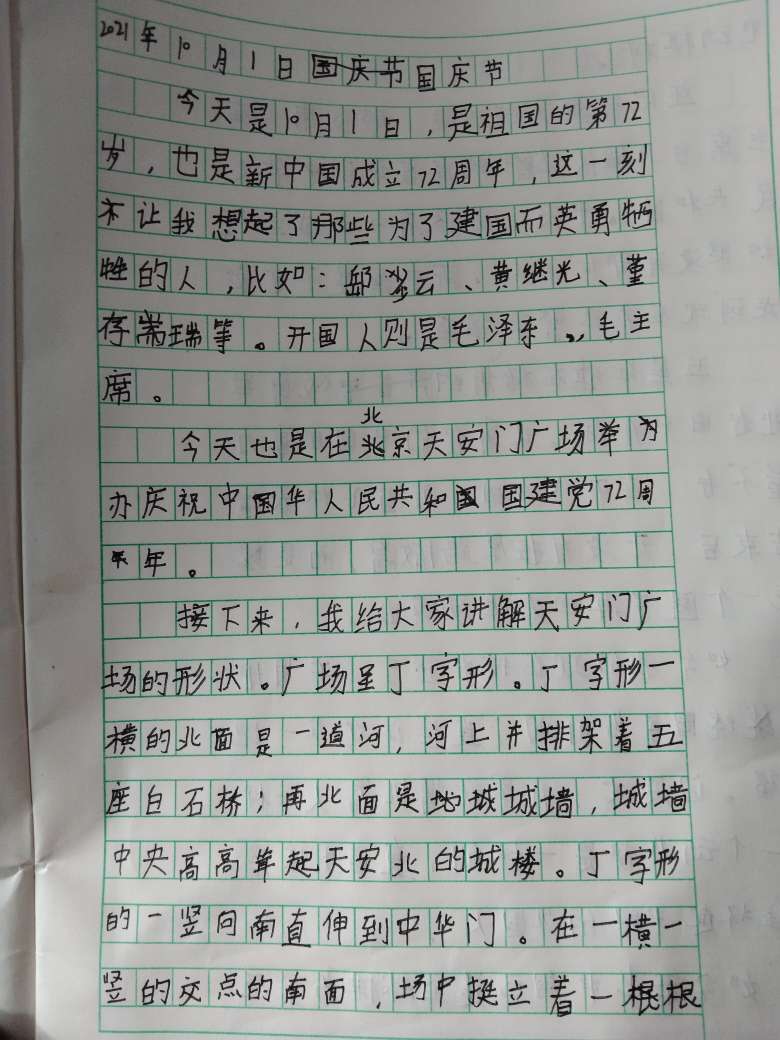 2021年10月1日国庆节国庆节
今天是10月1日，是祖国的第72
岁，也是新中国成立72周年，这一刻
不让我想起了那些为了建国而英勇牺
牲的人，比如：邱少云、黄继光、董
存瑞等。开国人则是毛泽东，毛主
席。
今天也是在北京天安门广场举为
办庆祝中国华人民共和国国建党72周
年。
接下来，我给大家讲解天安门广
场的形状。广场呈丁字形。丁字形一
横的北面是一道河，河上并排架着五
座白石桥；再北面是城城墙，城墙
中央高高耸起天安北的城楼。丁字形
的一竖向南直伸到中华门。在一横一
竖的交点的南面，场中挺立着一根根